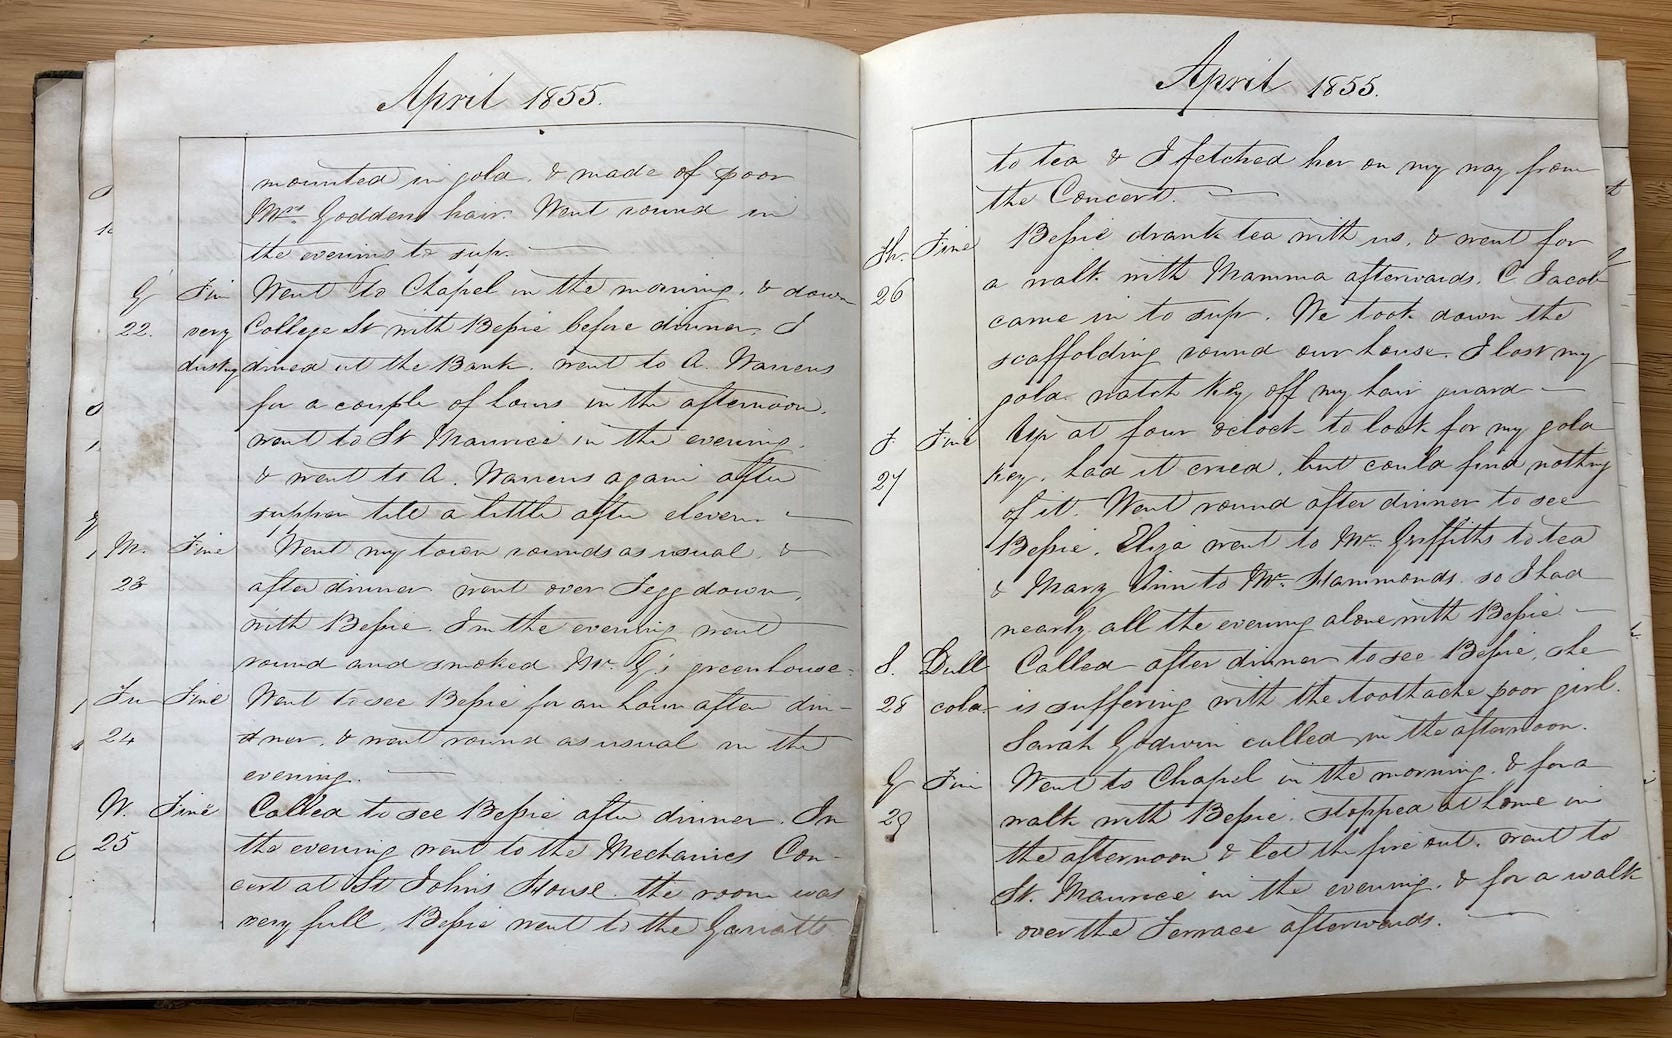 April 1855.
mounted in gold. & made of poor
Mrs Goddens hair. Went round in
the evening to sup.
G Fine Went to Chapel in the morning. & down
22. very College St with Bessie before dinner. I
dusty dined at the Bank. went to A. Warrens
for a couple of hours in the afternoon.
went to St Maurice in the evening.
& went to A. Warrens again after
supper till a little after eleven.
M. Fine Went my town rounds as usual. &
23 after dinner went over Teggdown,
with Bessie. In the evening went
round and smoked Mr. G's greenhouse.
Tu Fine Went to see Bessie for an hour after din-
24 ner. & went round as usual in the
evening.
W. Fine Called to see Bessie after dinner. In
25 the evening went to the Mechanics Con-
cert at St Johns House. the room was
very full. Bessie went to the
April 1855.
to tea & I fetched her on my way from
the Concert.
Th. Fine Bessie drank tea with us. & went for
26 a walk with Mamma afterwards. C. Jacob
came in to sup. We took down the
scaffolding round our house. I lost my
gold watch key off my hair guard
F Fine Up at four oclock to look for my gold
27 key. had it cried. but could find nothing
of it. Went round after dinner to see
Bessie. Eliza went to Mr. Griffiths to tea
& Mary Ann to Mr. Hammonds. so I had
nearly all the evening alone with Bessie
S. Dull Called after dinner to see Bessie. she
28 cold is suffering with the toothache poor girl.
Sarah Godwin called in the afternoon.
G Fine Went to Chapel in the morning. & for a
29 walk with Bessie. stopped at home in
the afternoon & let the fire out. went to
St. Maurice in the evening. & for a walk
over the Terrace afterwards.